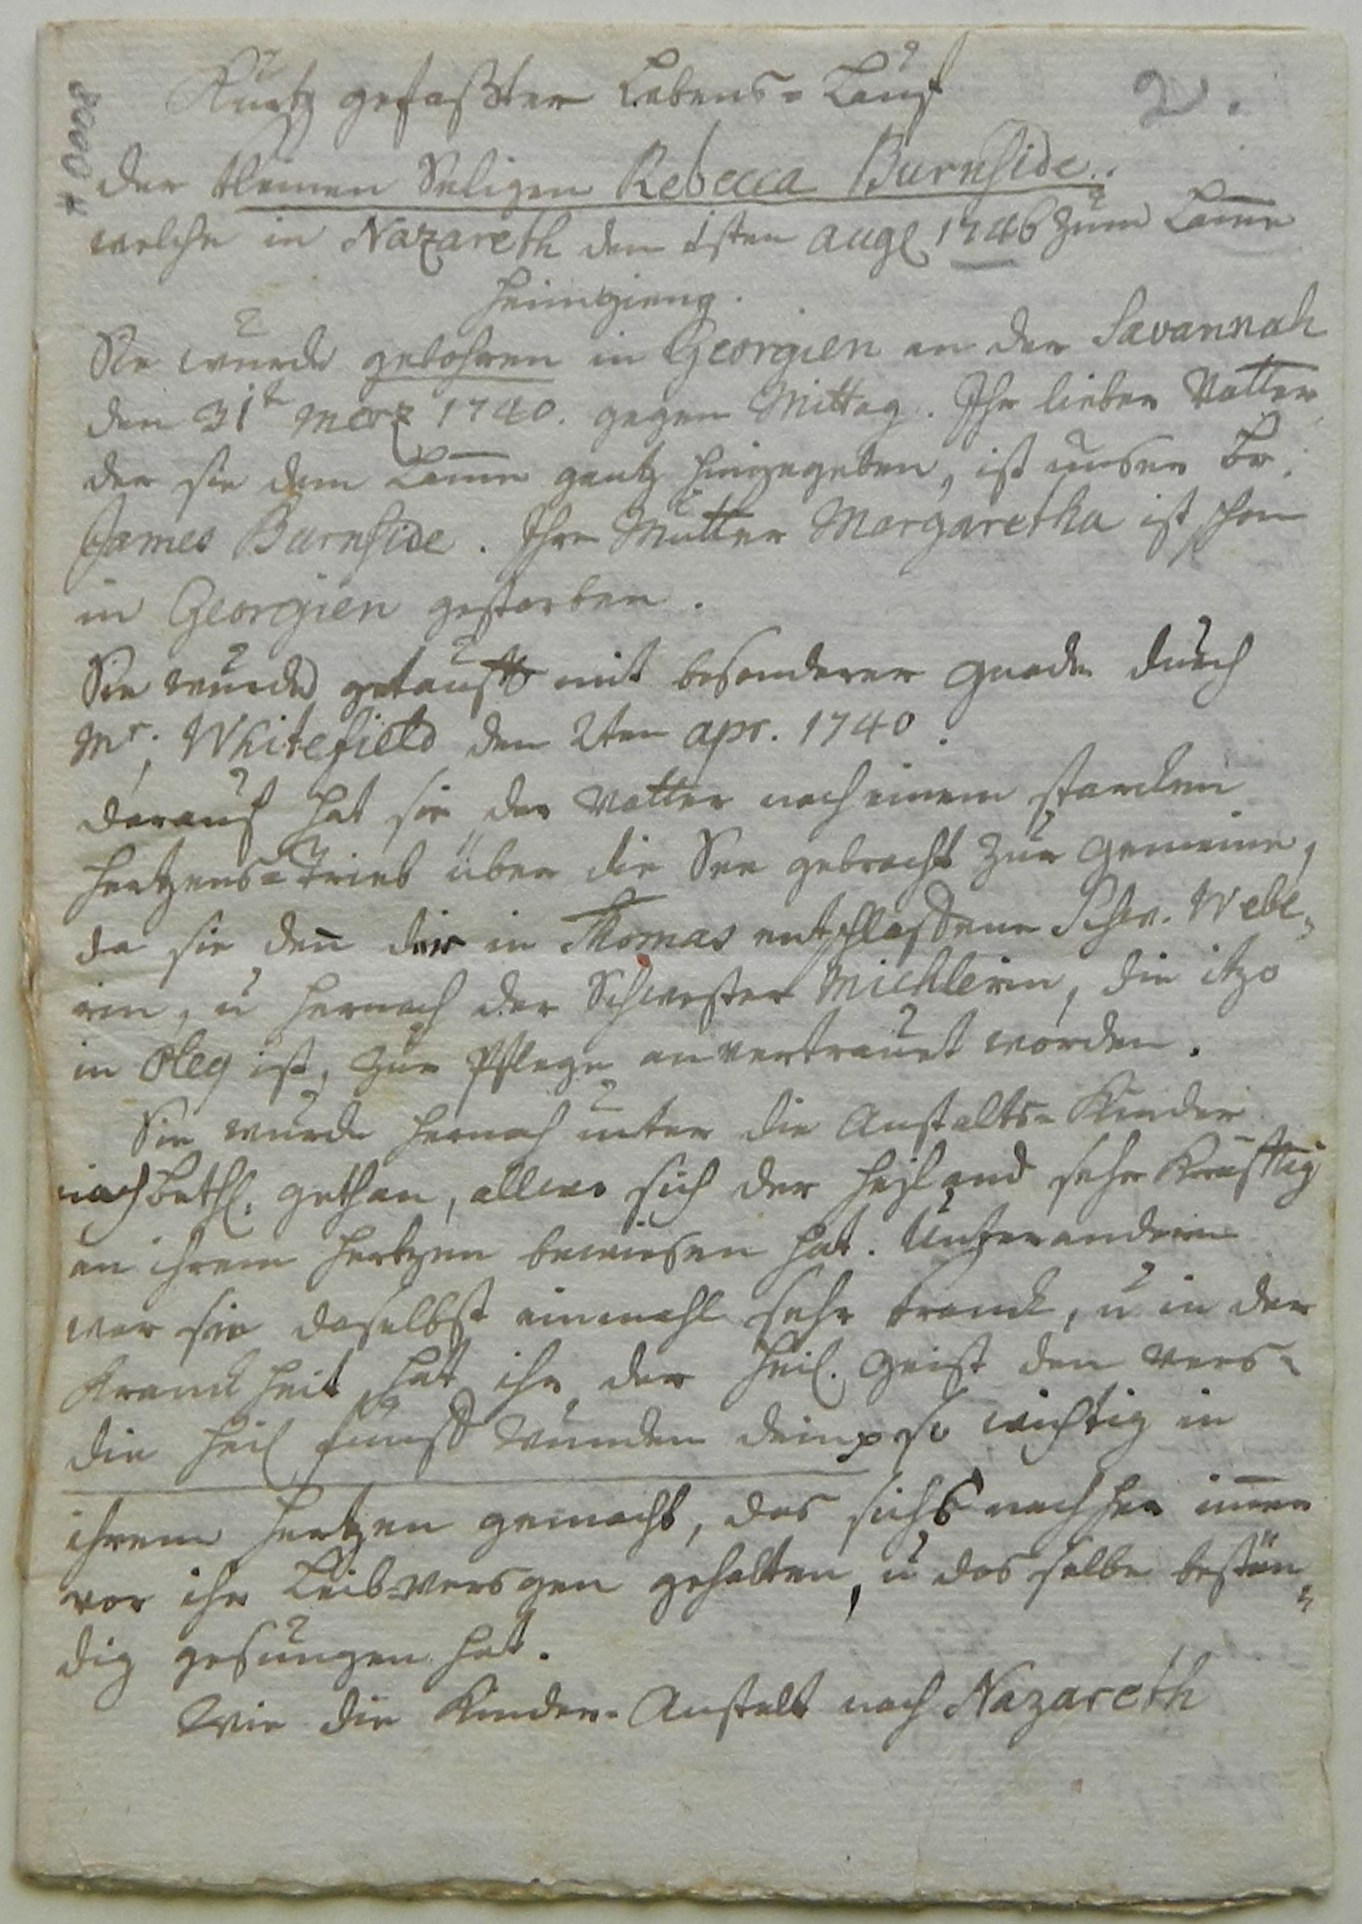 Kurtz gefaßter Lebens=Lauf
2.
der kleinen Seligen Rebecca Burnside.
welche in Nazareth den 1sten augl 1746 zum Lam̄e
heimgieng.
Sie wurde gebohren in Georgien an der Savannah
den 31t Merz 1740. gegen Mittag. Ihr lieber Vatter
der sie dem Lam̄e gantz hingegeben, ist unser Br.
James Burnside. Ihre Mutter Margaretha ist schon
in Georgien gestorben.
Sie wurde getaufft mit besonderer gnade durch
Mr. Whitefield den 2ten apr. 1740.
darauf hat sie der Vatter nach einem starcken
Hertzens=Trieb über die See gebracht zur Gemeine,
da sie den̄ der in Thomas entschlaffene Schw. Webe=
rin, u hernach der Schwester Michlerin, die itzo
in Oley ist, zur Pflege anvertrauet worden.
Sie wurde hernach unter die Anstalts=Kinder
nach Bethl. gethan, allwo sich der Heyland sehr kräfftig
an ihrem Hertzen bewiesen hat. Unter andern
war sie daselbst einmahl sehr kranck, u in der
Kranckheit hat ihr der Heil. Geist den Vers=
die heil fünff Wunden dein so wichtig in
ihrem Hertzen gemacht, das sichs nachher im̄er
vor ihr Leib-Versgen gehalten, u das selbe bestän=
dig gesungen hat.
Wie die Kinder-Anstalt nach Nazareth